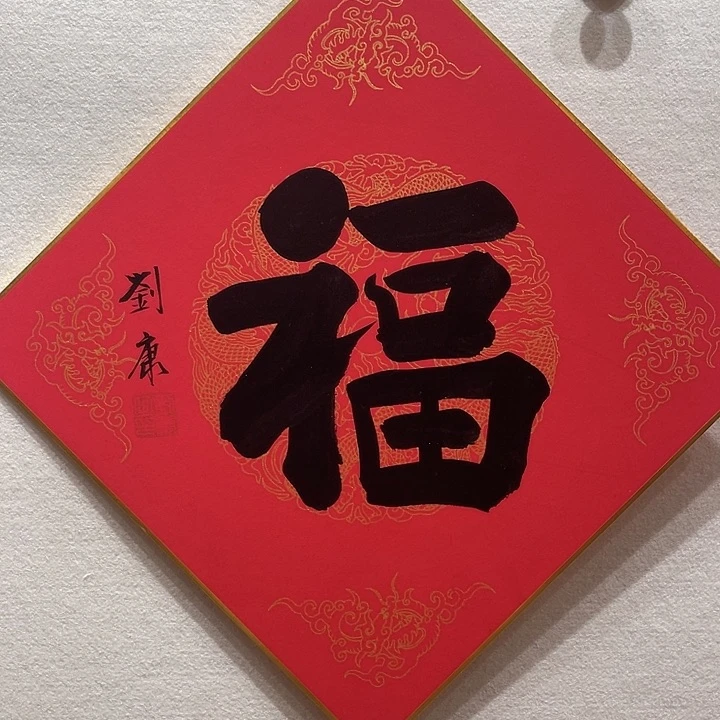 福
劉康